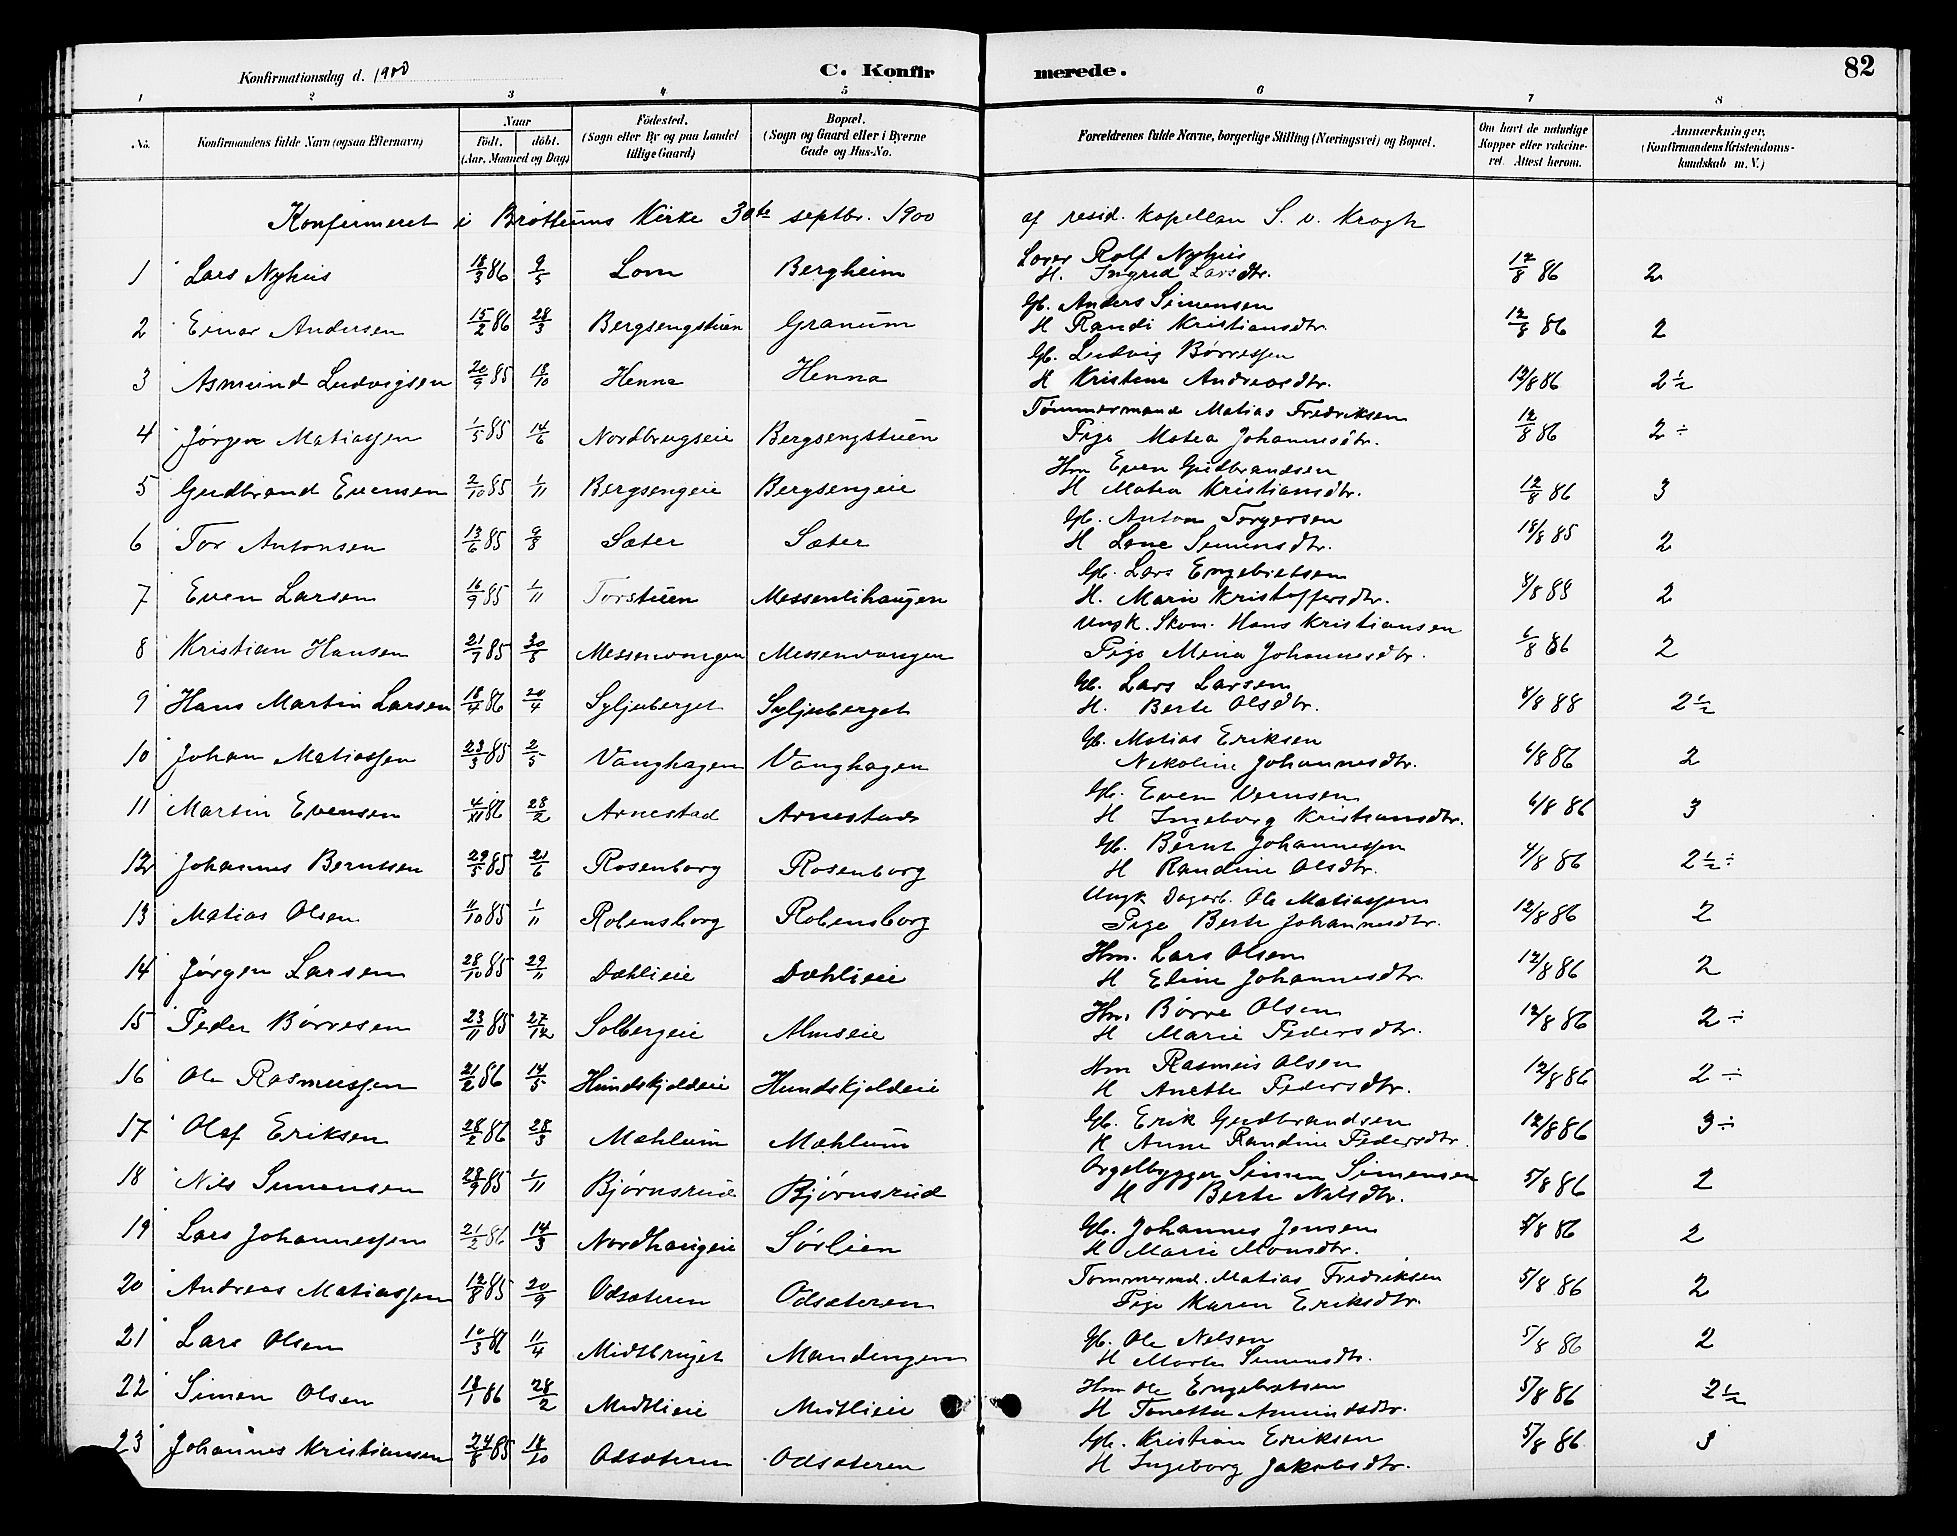 Konfirmationsdag d. 1900
C. Konfir merede. 82
1 2 3 4 5 6 7 8
No. Konfirmandens fulde Navn (ogsaa Efternavn) Naar födt. döbt. (Aar, Maaned og Dag) Födested. (Sogn eller By og paa Landet tillige Gaard) Bopæl. (Sogn og Gaard eller i Byerne Gade og Hus-No. Forældrenes fulde Navne, borgerlige Stilling (Næringsvei) og Bopæl. Om havt de naturlige Kopper eller vakcineret. Attest herom. Anmærkninger. (Konfirmandens Kristendomskundskab m. V.)
Konfirmeret i Brøttums Kirke 30te septbr. 1900 af resid. kapellan S. v. Krogh
1 Lars Nyhus 18/3 86 9/5 Lom Bergheim Rolf Nyhus H. Ingrid Larsdtr. 12/8 86 2
2 Einar Andersen 15/2 86 28/3 Bergsengstuen Granum Gb. Anders Simensen H Randi Kristiansdtr. 12/8 86 2
3 Asmund Ludvigsen 20/9 85 18/10 Henna Henna Gb. Ludvig Børresen H Kristine Andreasdtr. 12/8 86 2½
4 Jørgen Matiassen 1/5 85 14/6 Nordbrugseie Bergsengstuen Tømmermand Matias Fredriksen Pige Matea Johannesdtr. 12/8 86 2÷
5 Gudbrand Evensen 2/10 85 1/11 Bergsengeie Bergsengeie Hm Even Gudbrandsen H Matea Kristiansdtr. 12/8 86 3
6 Tor Antonsen 13/6 85 9/8 Sæter Sæter Gb. Anton Torgersen H Lene Simensdtr. 18/8 85 2
7 Even Larsen 16/9 85 1/11 Torstuen Messenlihaugen Gb. Lars Engebretsen H. Marie Kristoffersdtr. 2
8 Kristian Hansen 21/7 85 30/8 Messenvangen Messenvangen Ungk. Skom. Hans Kristiansen Pige Mina Johannesdtr. 6/8 86 2
9 Hans Martin Larsen 18/4 86 20/4 Syljuberget Syljuberget Gb. Lars Larsen H. Berte Olsdtr. 8/8 88 2½
10 Johan Matiassen 23/3 85 2/5 Vanghagen Vanghagen Gb. Matias Eriksen Nikoline Johannesdtr. 6/8 86 2
11 Martin Evensen 28/2 Arnestad Arnestad Gb. Even H Ingeborg Kristiansdtr. 6/8 86 3
12 Johannes Berntsen 29/5 85 21/6 Rosenborg Rosenborg Gb. Bernt Johannessen H Randine Olsdtr. 4/8 86 2½÷
13 Matias Olsen 11/10 85 1/11 Robensborg Robensborg Ungk. Dagarb. Ole Matiassen Pige Berte Johannesdtr. 12/8 86 2
14 Jørgen Larsen 28/10 85 29/11 Dæhlieie Dæhlieie Hm. Lars Olsen H Eline Johannesdtr. 12/8 86 2
15 Peder Børresen 23/11 85 27/12 Solbergeie Almseie Hm. Børre Olsen H Marie Pedersdtr. 12/8 86 2÷
16 Ole Rasmussen 21/2 86 14/5 Hundskjoldeie Hundskjoldeie Hm Rasmus Olsen H Anette Pedersdtr. 12/8 86 2÷
17 Olaf Eriksen 28/2 86 28/3 Mæhlum Mæhlum Gb. Erik Gudbrandsen H Anne Randine Pedersdtr. 12/8 86 3÷
18 Nils Simensen 28/9 85 1/11 Bjørnsrud Bjørnsrud Orgelbygger Simen Simensen H Berte Nilsdtr. 5/8 86 2
19 Lars Johannessen 21/2 86 14/3 Nordhaugeie Sørlien Gb. Johannes Jensen H Marie Monsdtr. 5/8 86 2
20 Andreas Matiassen 12/8 85 20/9 Odsæteren Odsæteren Tømmermd. Matias Fredriksen Pige Karen Eriksdtr. 5/8 86 2
21 Lars Olsen 10/3 86 11/4 Midtbruget Mandengen Gb. Ole Nilsen H Marte Simensdtr. 5/8 86 2
22 Simen Olsen 18/1 86 28/2 Midtlieie Midtlieie Hm Ole Engebretsen H Tonetta Amundsdtr. 5/8 86 2½
23 Johannes Kristiansen 24/8 85 18/10 Odsæteren Odsæteren Gb. Kristian Eriksen H Ingeborg Jakobsdtr. 5/8 86 3